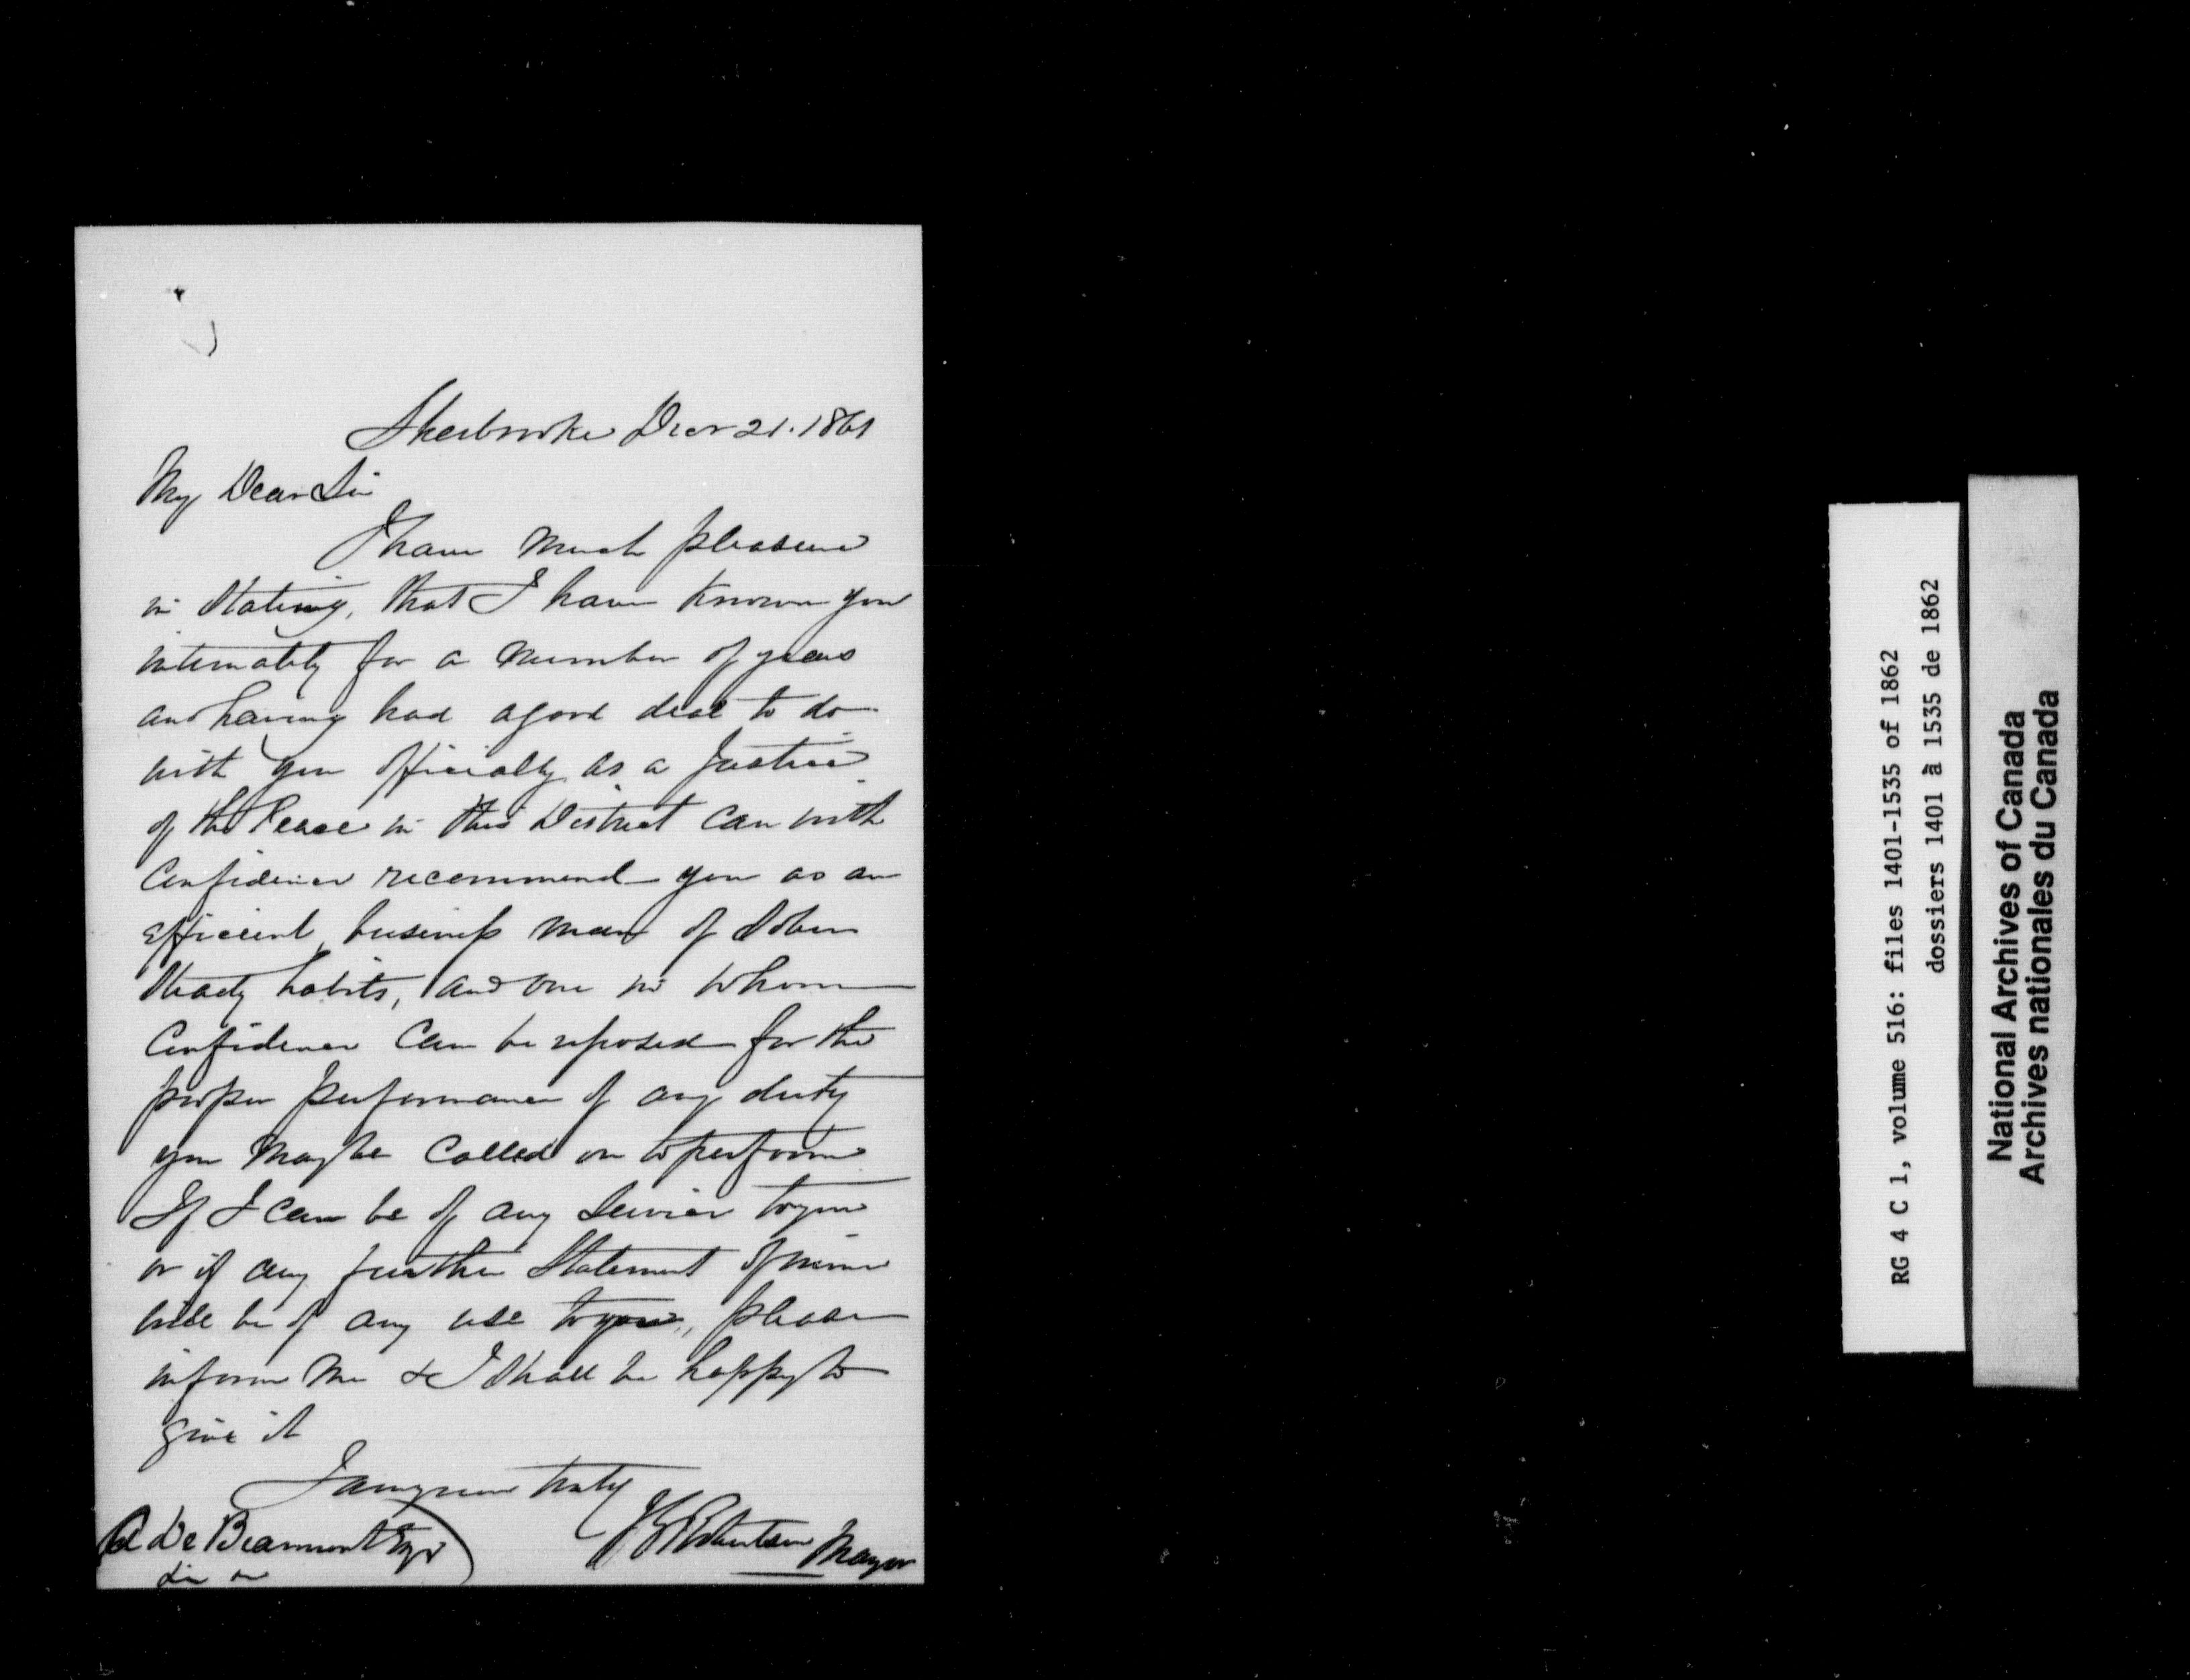 Sherbrooke Decr 21. 1861
My Dear Sir
I have much pleasure
in stating, that I have known you
intimately for a number of years
and having had a good deal to do
with you officially as a Justice
of the Peace in this District can with
Confidence recommend you as an
efficient business man of sober
steady habits, and one in whom
Confidence can be reposed for the
proper performance of any duty
you may be called on to perform
If I can be of any Service to you
or if any further Statement of mine
will be of any use to you, please
inform me & I shall be happy to
give it
I am yours truly
J G Robertson Mayor
A De Beaumont Esqr
RG 4 C 1, volume 516: files 1401-1535 of 1862
dossiers 1401 à 1535 de 1862
National Archives of Canada
Archives nationales du Canada